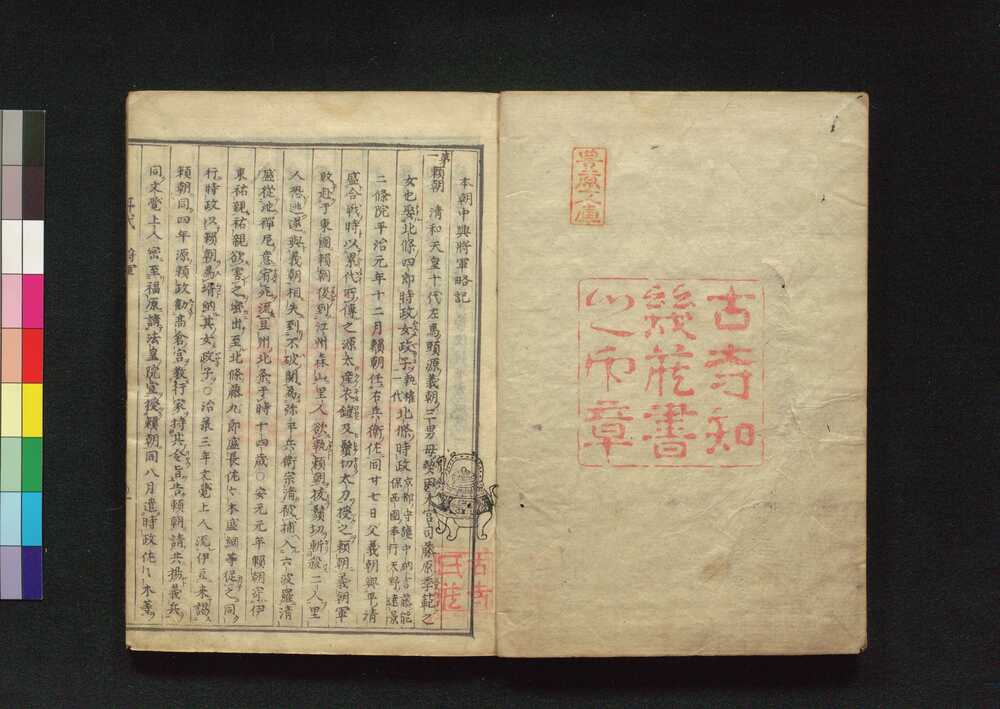 豊原文庫
古寺知
幾蔵書
之印章
本朝中興將軍略記
第一
頼朝 清和天皇十代左馬頭源義朝三男母熱田大宮司藤原季範之
女也娶北條四郎時政女政子執權一代北條時政京都守護中納言藤能
保西國奉行天野遠景
二條院平治元年十二月頼朝任右兵衛佐同廿七日父義朝與平清
盛合戦時以累代所傳之源太産衣鎧及鬚切太刀授之頼朝義朝軍
敗赴于東國頼朝後到江州森山里人欲執頼朝抜鬚切斬殺二人里
人恐逃還與義朝相失到不破関為弥平兵衛宗清被捕入六波羅清
盛從池禪尼意宥死流豆州北条于時十四歳○安元元年頼朝
東祐親祐親欲害之密出至北條藤九郎盛長佐々木盛綱等從之同
行時政以頼朝為壻納其女政子○治承三年文覺上人流伊豆来謁
頼朝同四年源頼政勧高倉宮敎行家持其令旨告頼朝請共揚義兵
同文覺上人密至福原請法皇院宣授頼朝同八月遣時政佐々木
古寺
氏蔵